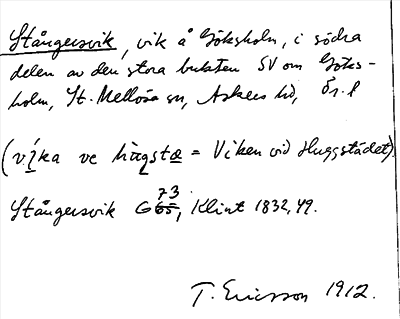 Stångersvik, vik å Göksholm, i södra
delen av den stora bukten SV om Göks-
holm, St. Mellösa sn, Askers hd, Ör. l
(víka ve hùgstæ = Viken vid Huggstädet).
Stångersvik G 73, Klint 1832, 49.
T. Ericsson 1912.